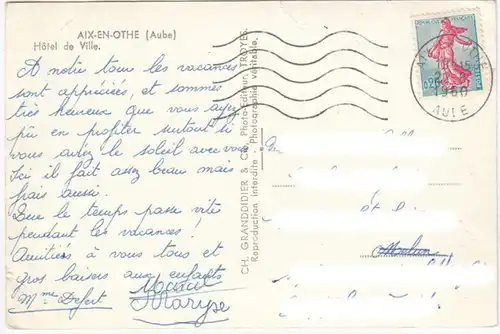 AIX-EN-OTHE (Aube)
Hôtel de Ville.
A notre tour les vacances
sont appréciées, et sommes
très heureux que vous ayez
pu en profiter surtout si
vous aviez le soleil avec vous.
Ici il fait assez beau mais
frais aussi.
Que le temps passe vite
pendant les vacances !
Amitiés à vous tous et
gros baisers aux enfants
Mme
Maryse
CH. GRANDDIDIER & Cie, Photo-Editeur, TROYES
Reproduction Interdite - Photographie véritable.
1960
AUBE
et à